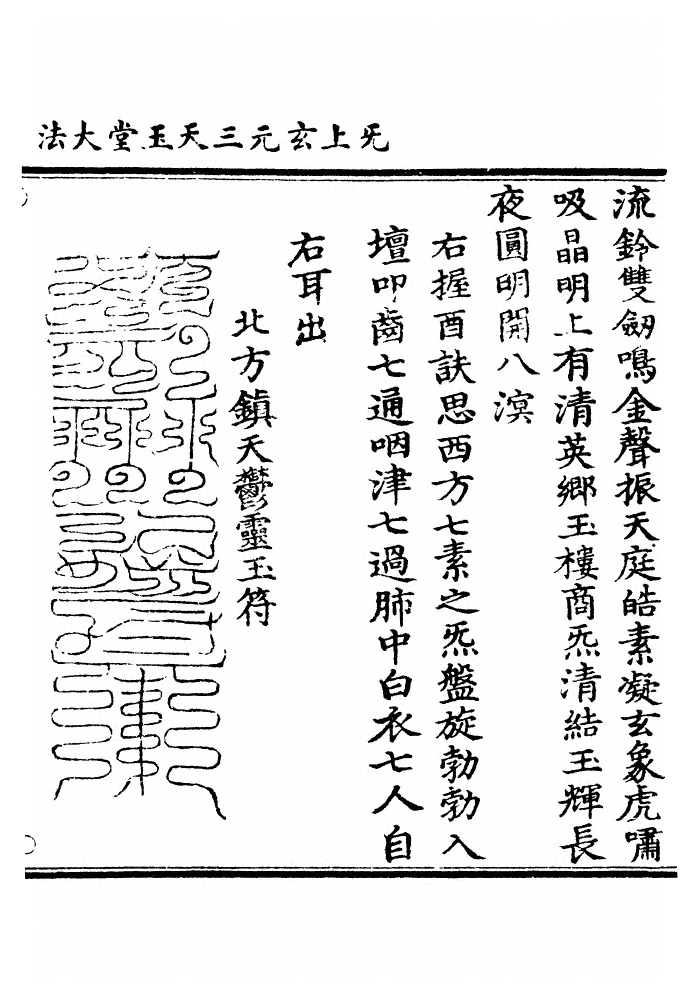 法大堂玉天三元玄上旡
流鈴雙劒鳴金聲振天庭皓素凝玄象虎嘯
吸晶明上有清英鄉玉樓商炁清結玉輝長
夜圓明開八溟
右握酉訣思西方七素之炁盤旋勃勃入
壇叩齒七通咽津七過肺中白衣七人自
右耳出
北方鎮天鬱靈玉符